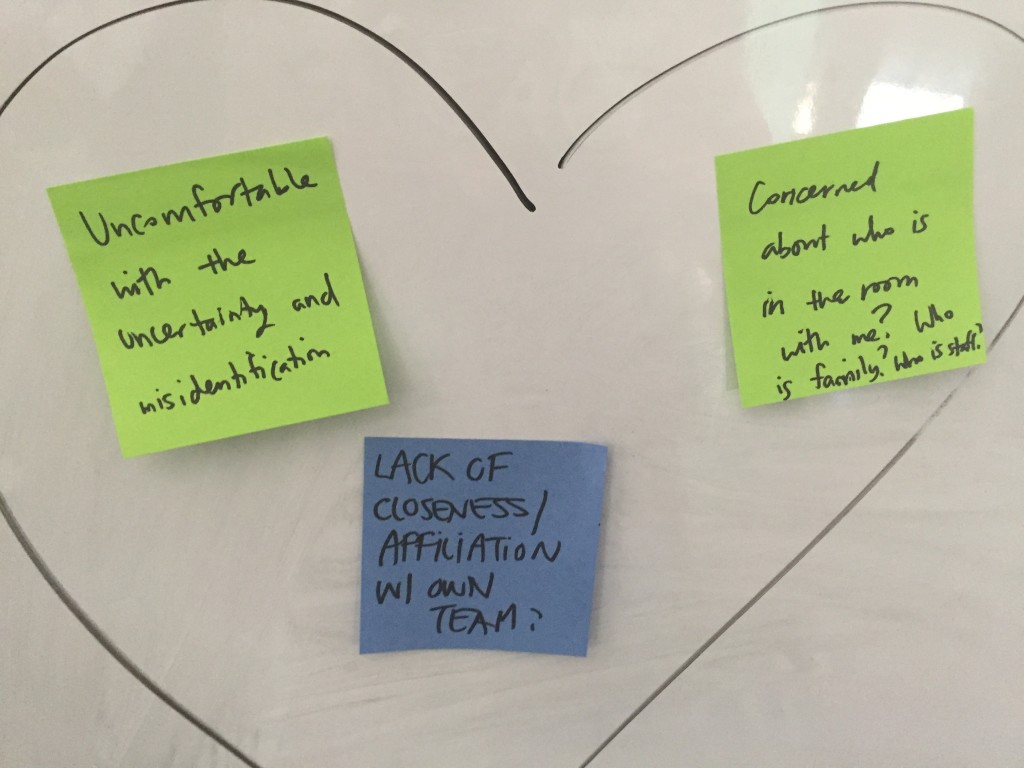 Uncomfortable
with the
uncertainty and
misidentification
Concerned
about who is
in the room
with me? Who
is family? Who is staff?
LACK OF
CLOSENESS/
AFFILIATION
W/ OWN
TEAM?